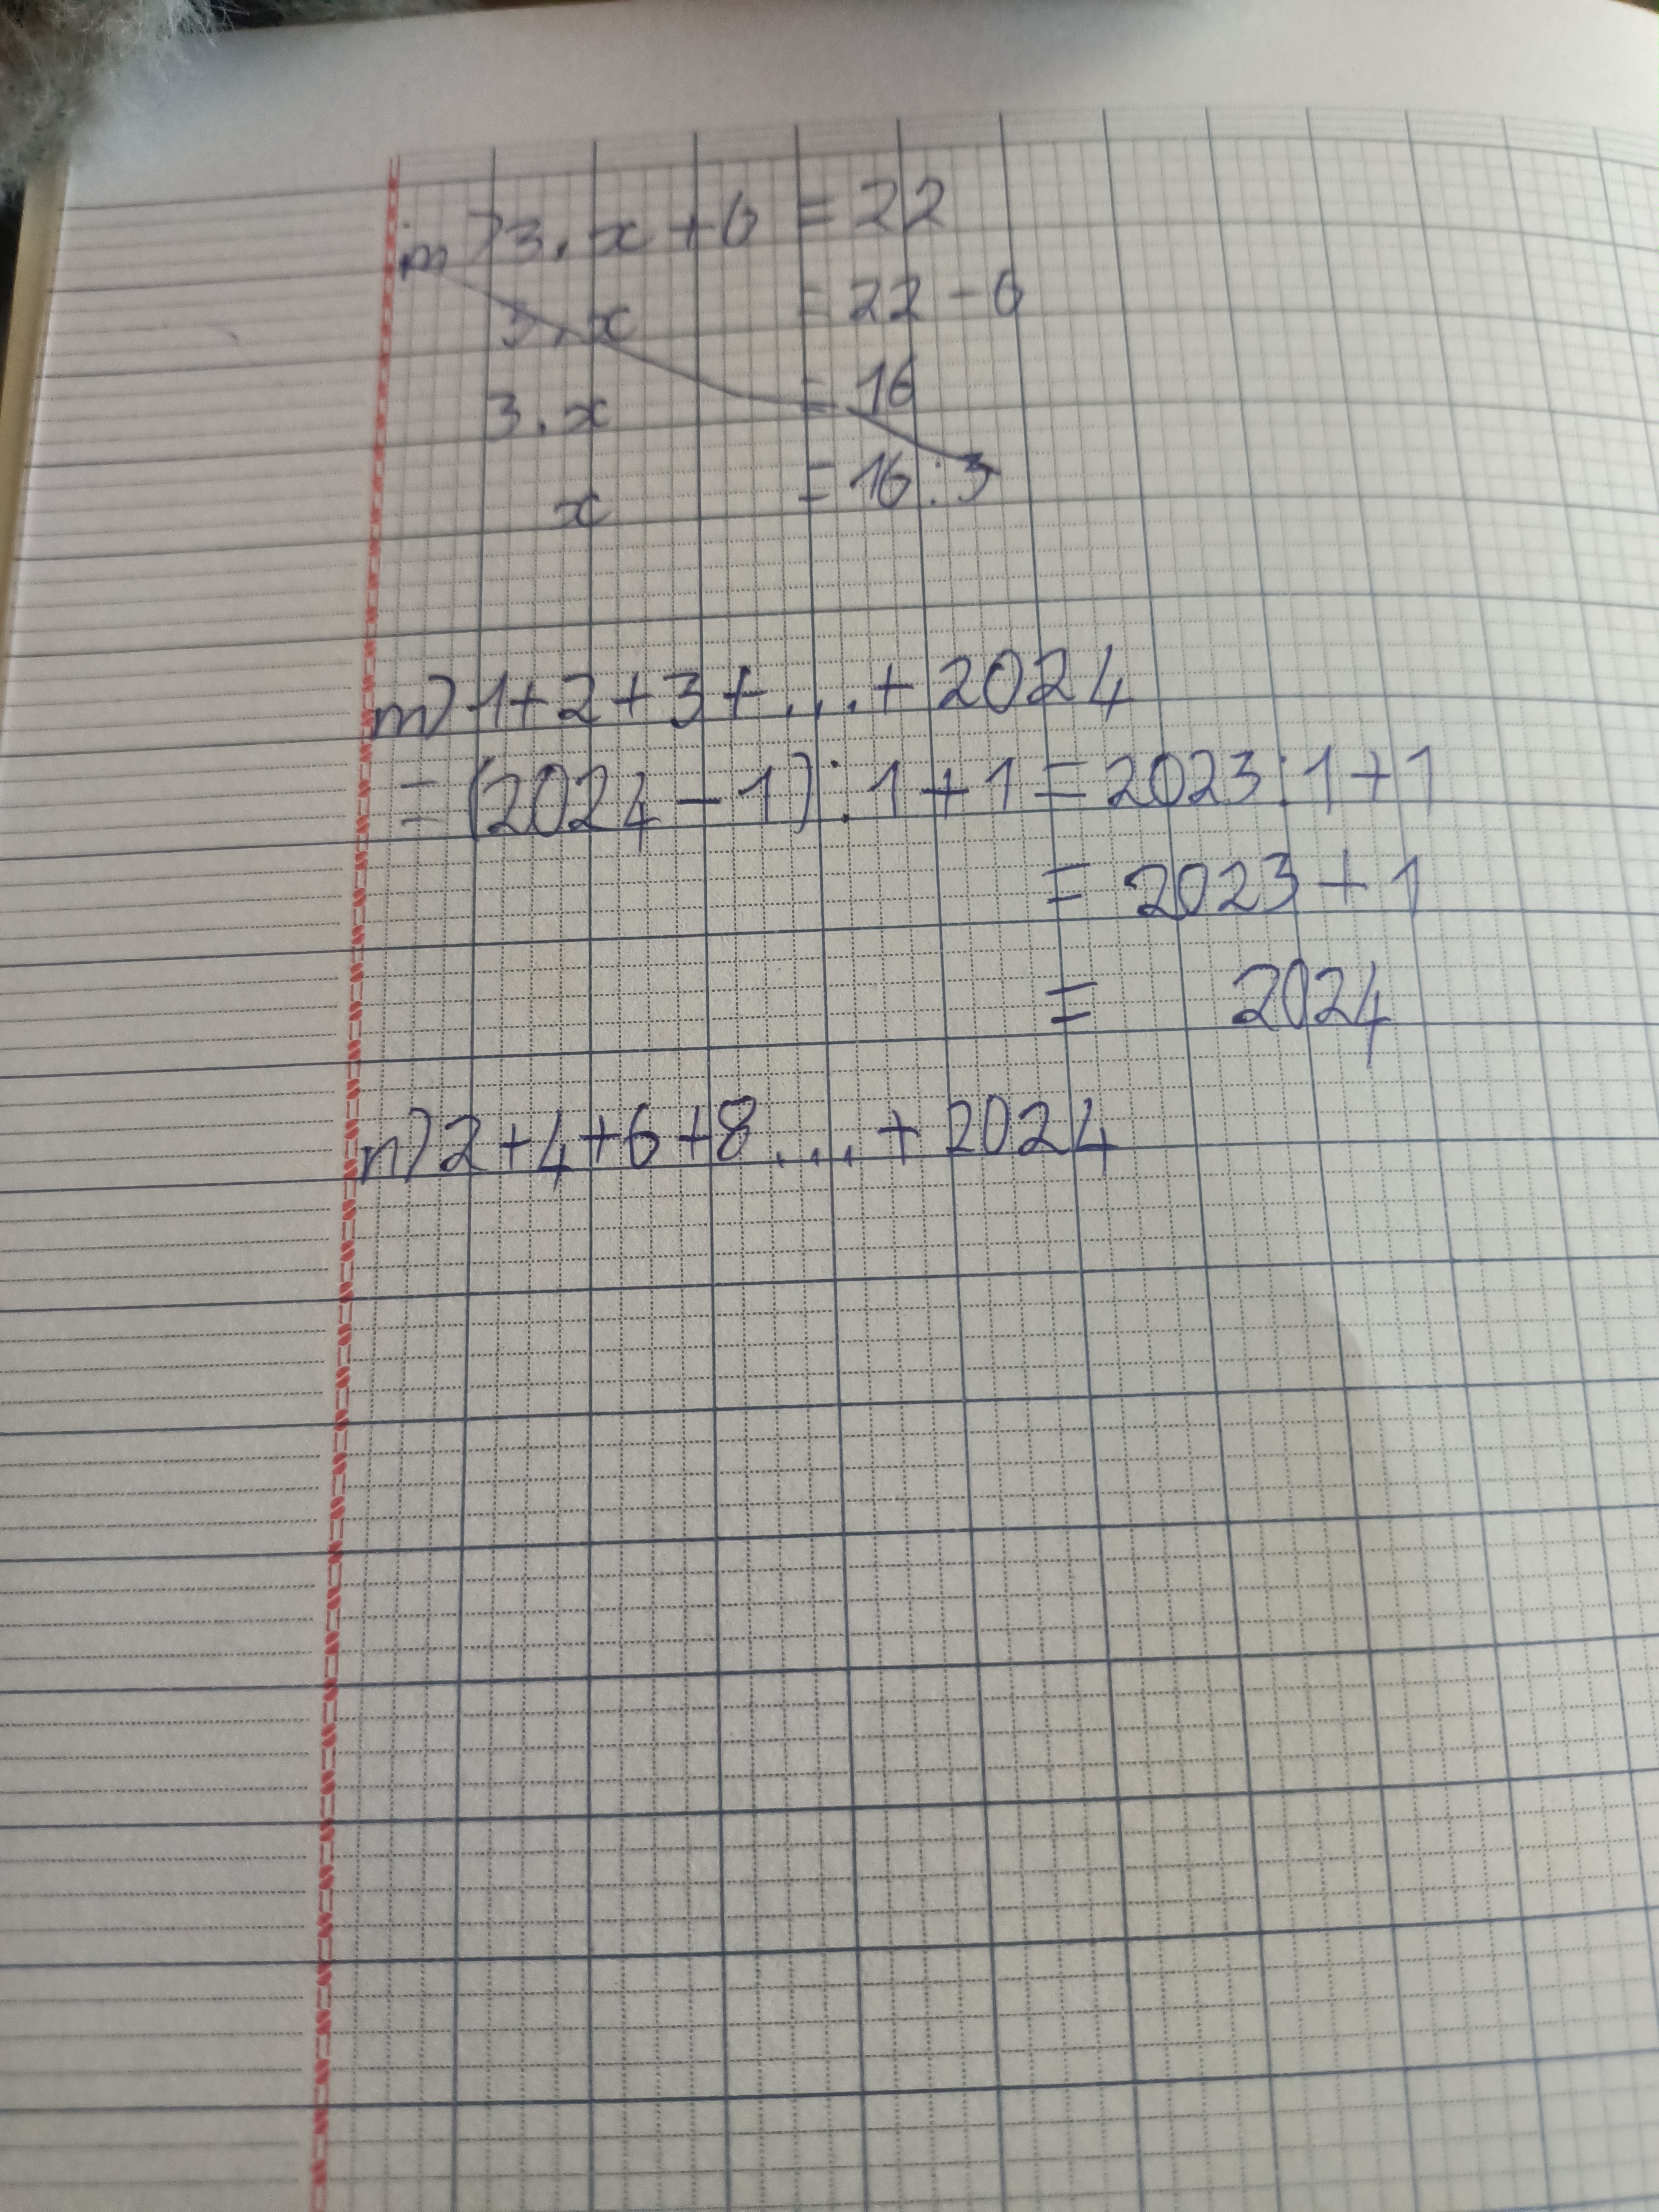 m) 3.x+6 = 22
3.x = 22-6
3.x = 16
x = 16:3
m) 1+2+3+...+2024
= (2024-1):1+1 = 2023:1+1
= 2023+1
= 2024
n) 2+4+6+8...+2024